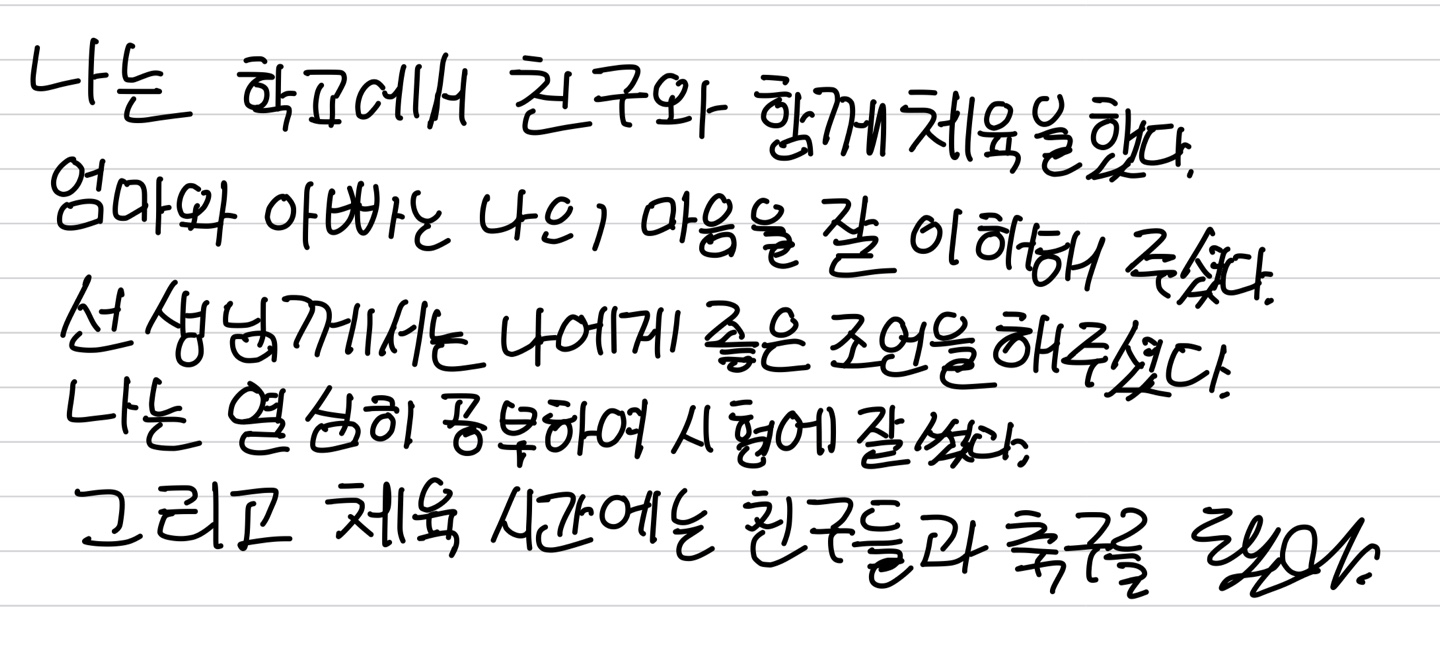 나는 학교에서 친구와 함께 체육을 했다.
엄마와 아빠는 나의 마음을 잘 이해해 주셨다.
선생님께서는 나에게 좋은 조언을 해주셨다.
나는 열심히 공부하여 시험에 잘 썼다.
그리고 체육 시간에는 친구들과 축구를